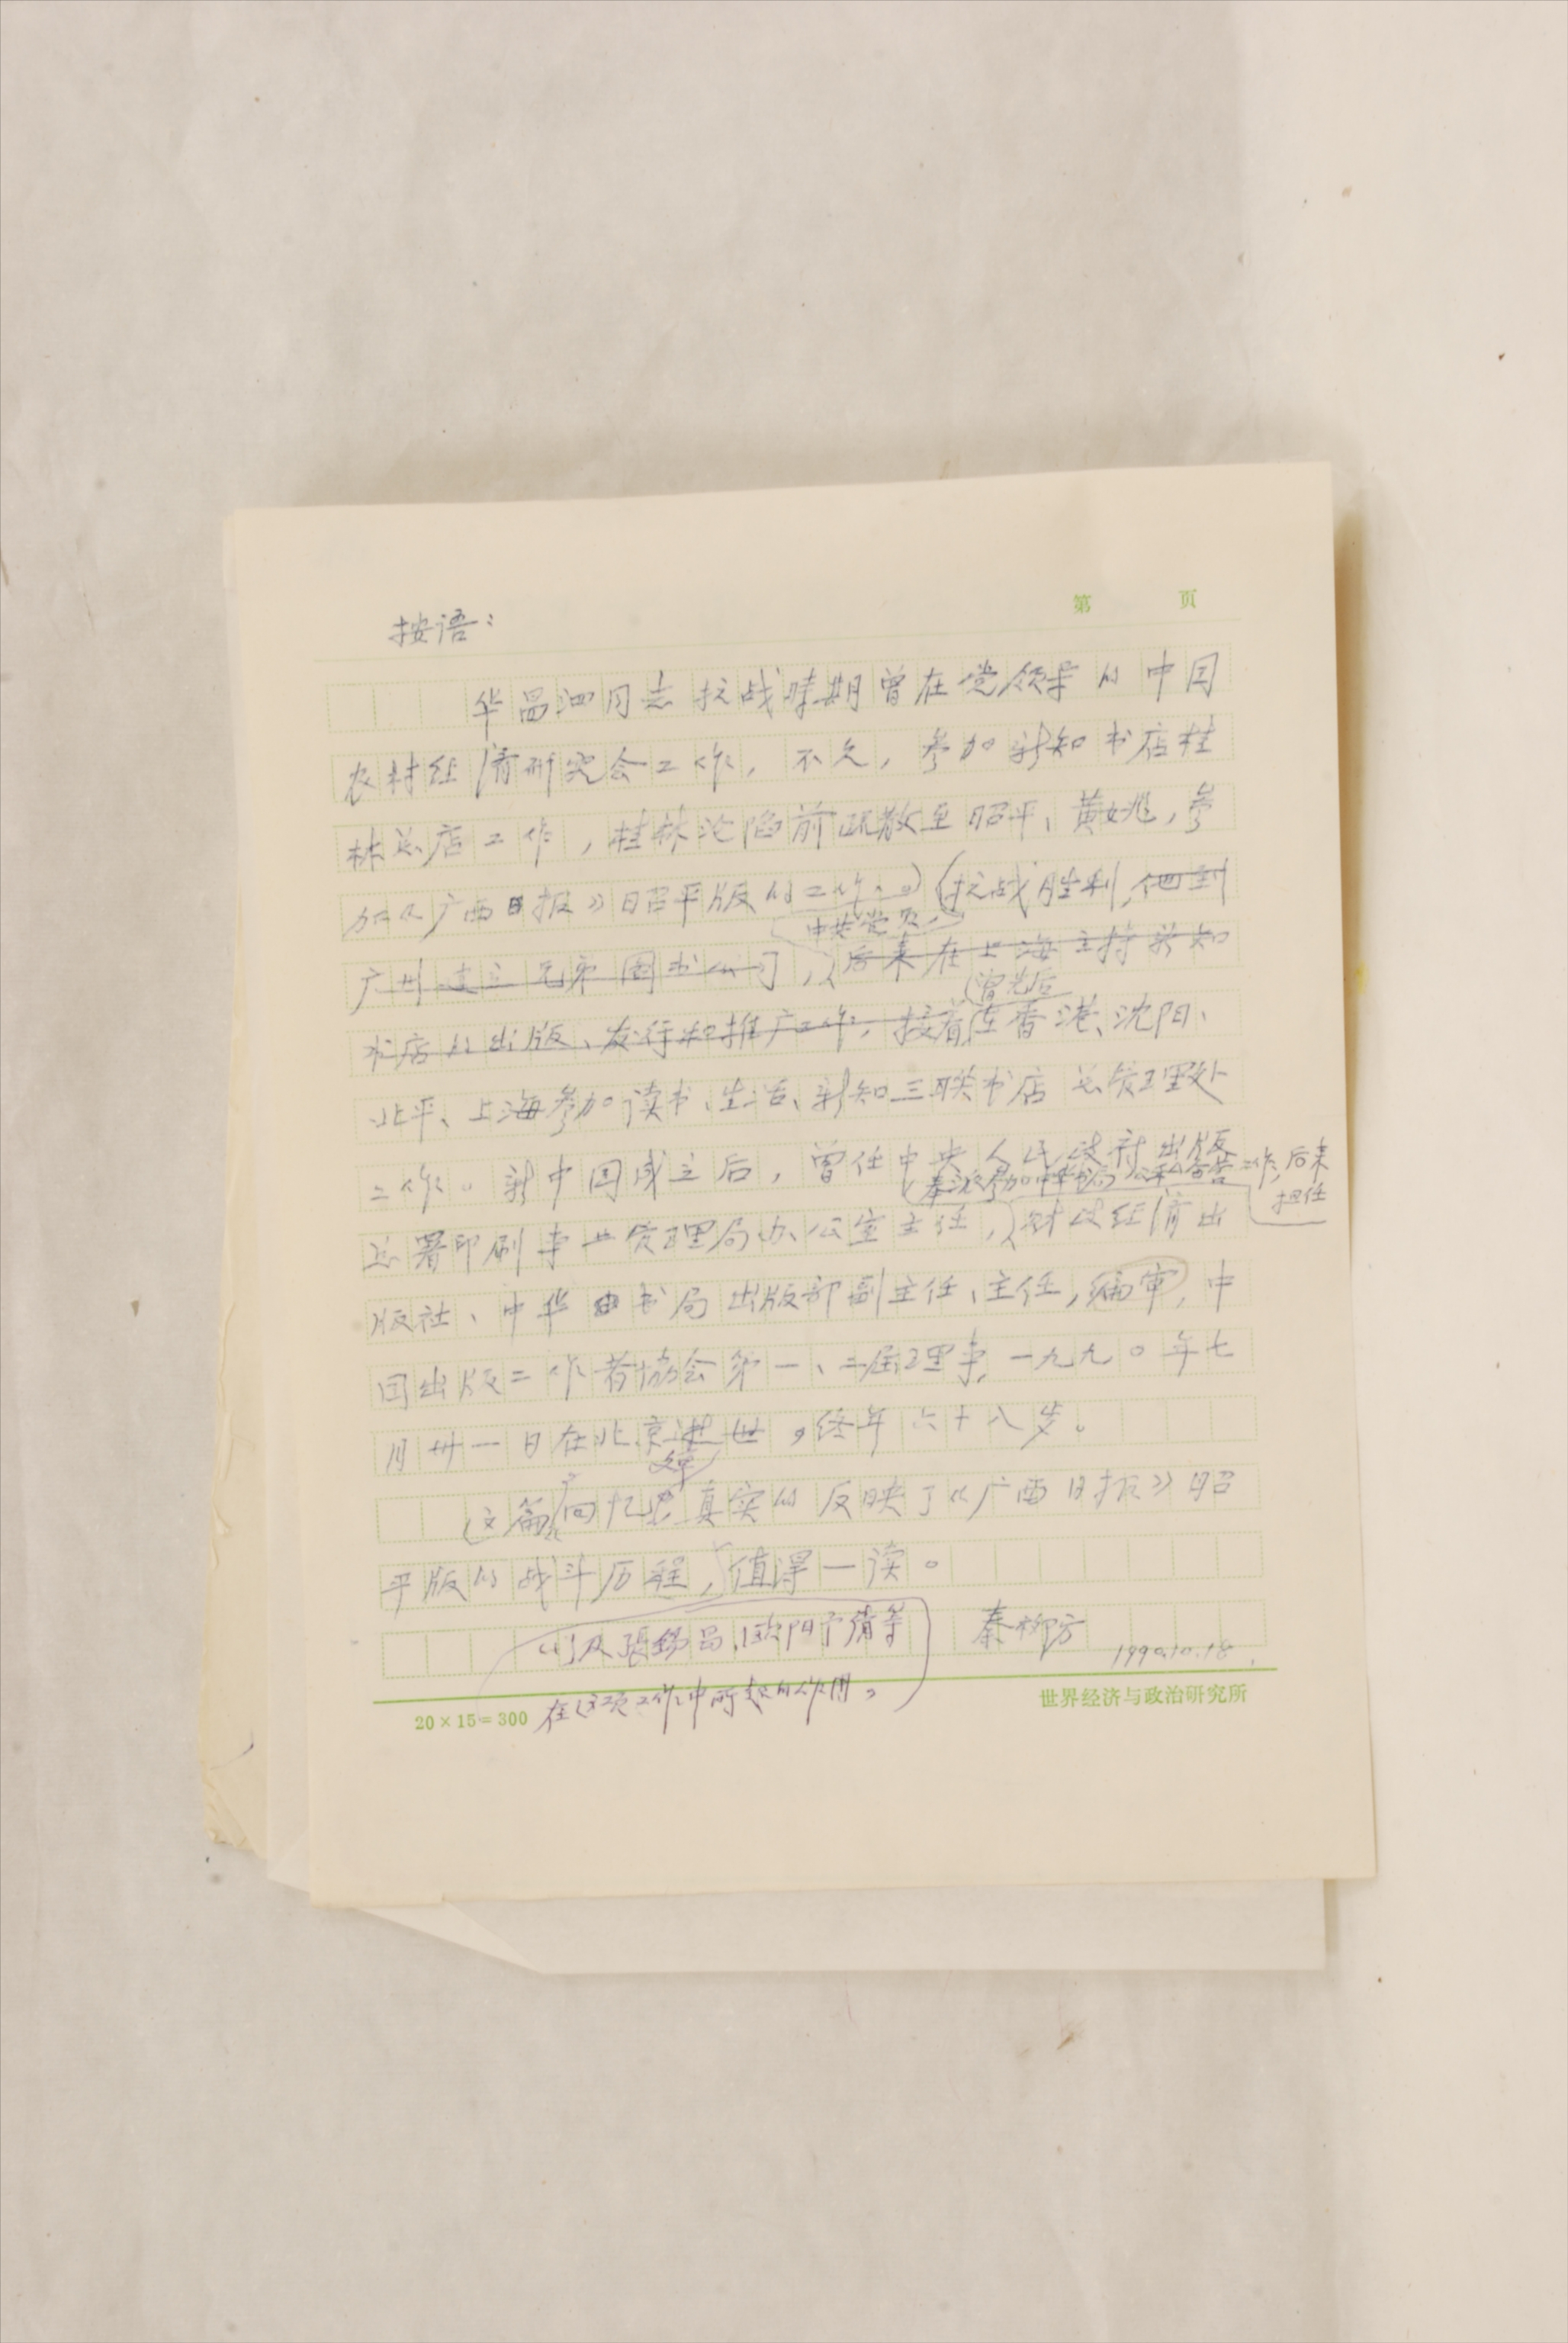 第 页
按语：
华昌泗同志抗战时期曾在党领导的中国
农村经济研究会工作，不久，参加新知书店桂
林总店工作，桂林沦陷前疏散至昭平、黄姚，参
加《广西日报》昭平版的工作。（抗战胜利，他到
中共党员
广州建立兄弟图书公司，后来在上海主持新知
曾先后
书店的出版、发行和推广工作，接着在香港、沈阳、
北平、上海参加读书、生活、新知三联书店总管理处
工作。新中国成立后，曾任中央人民政府出版
奉派参加中华书局公私合营工作，后来
担任
总署印刷事业管理局办公室主任，财政经济出
版社、中华书局出版部副主任、主任，编审，中
国出版工作者协会第一、二届理事，一九九〇年七
月卅一日在北京逝世，终年六十八岁。
文章
这篇回忆录真实的反映了《广西日报》昭
平版的战斗历程，值得一读。
以及张锡昌、欧阳予倩等
在这项工作中所起的作用，
秦柳方
1990.10.18.
20×15=300
世界经济与政治研究所